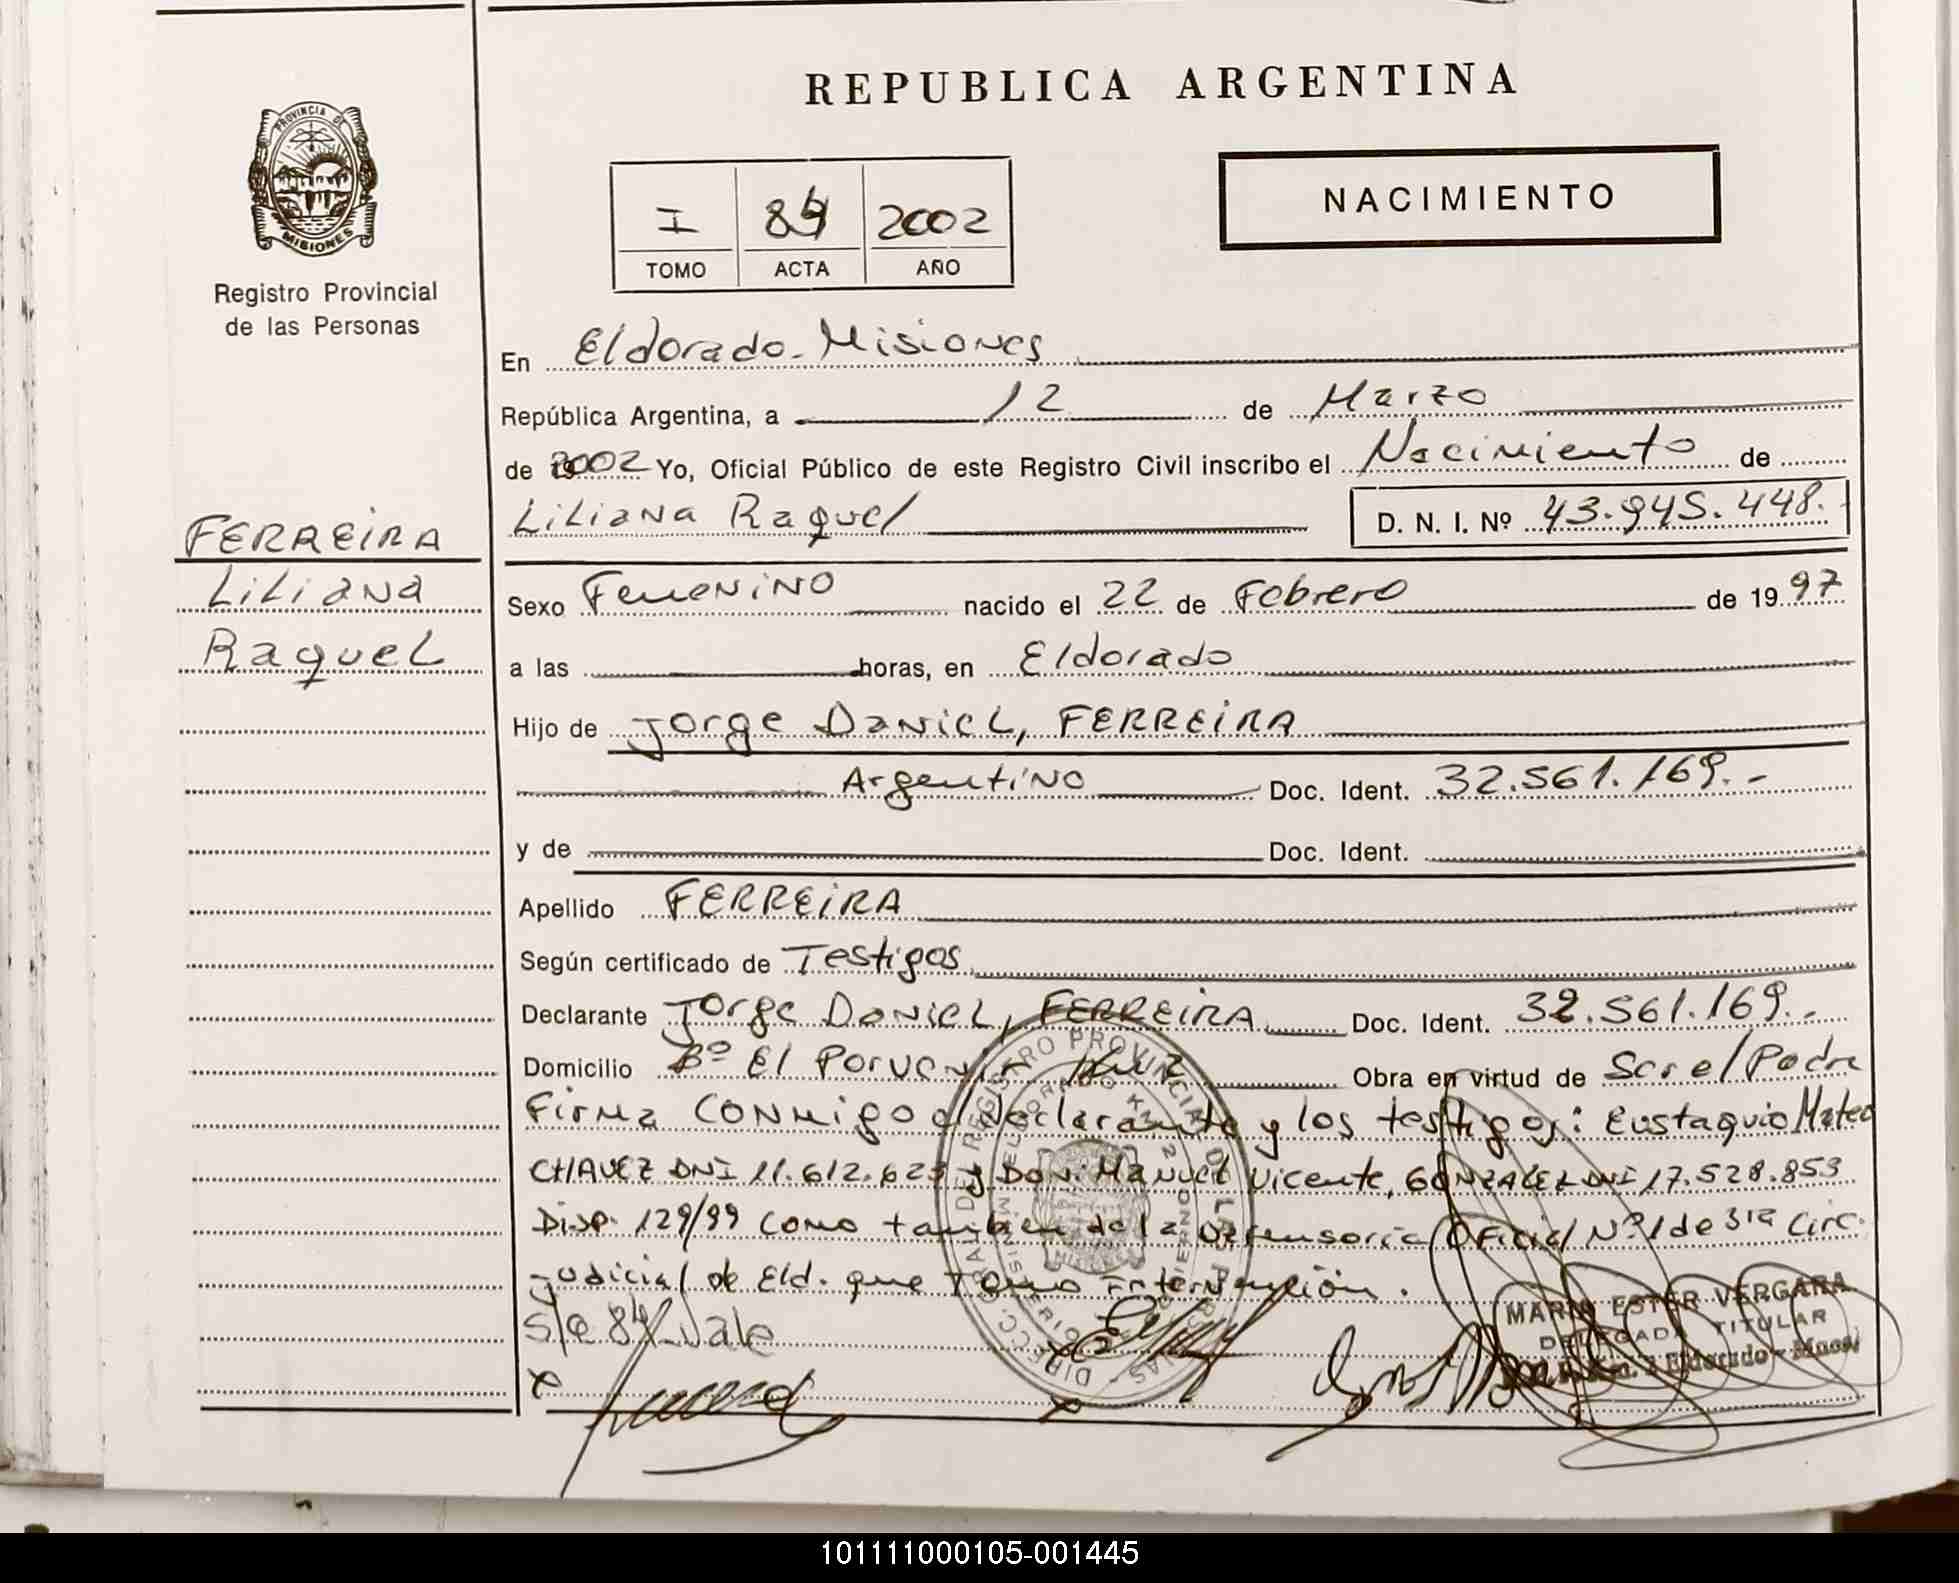 REPUBLICA ARGENTINA
PROVINCIA DE
MISIONES
Registro Provincial
de las Personas
I 2002
TOMO ACTA AÑO
NACIMIENTO
En Eldorado - Misiones
República Argentina, a 12 de Marzo
de 2002 Yo, Oficial Público de este Registro Civil inscribo el Nacimiento de
Liliana Raquel D. N. I. Nº 43.945.448.
FERREIRA
Liliana
Raquel
Sexo Femenino nacido el 22 de Febrero de 1997
a las horas, en Eldorado
Hijo de Jorge Daniel, FERREIRA
Argentino Doc. Ident. 32.561.169.-
y de Doc. Ident.
Apellido FERREIRA
Según certificado de Testigos
Declarante Jorge Daniel, FERREIRA Doc. Ident. 32.561.169.-
Domicilio Bº El Porvenir Km 2 Obra en virtud de Ser el Padre
Firma conmigo el declarante y los testigos: Eustaquio Mateo
CHAVEZ DNI 11.612.623 y Don: Manuel Vicente, GONZALEZ DNI 17.528.853
Disp. 129/99 como tambien de la Defensoria Oficial Nº 1 de 3ra Circ.
Judicial de Eld. que Tomo Intervención.
S/e 84 Vale
MARIA ESTER VERGARA
DELEGADA TITULAR
Km. 2 Eldorado - Mnes.
101111000105-001445